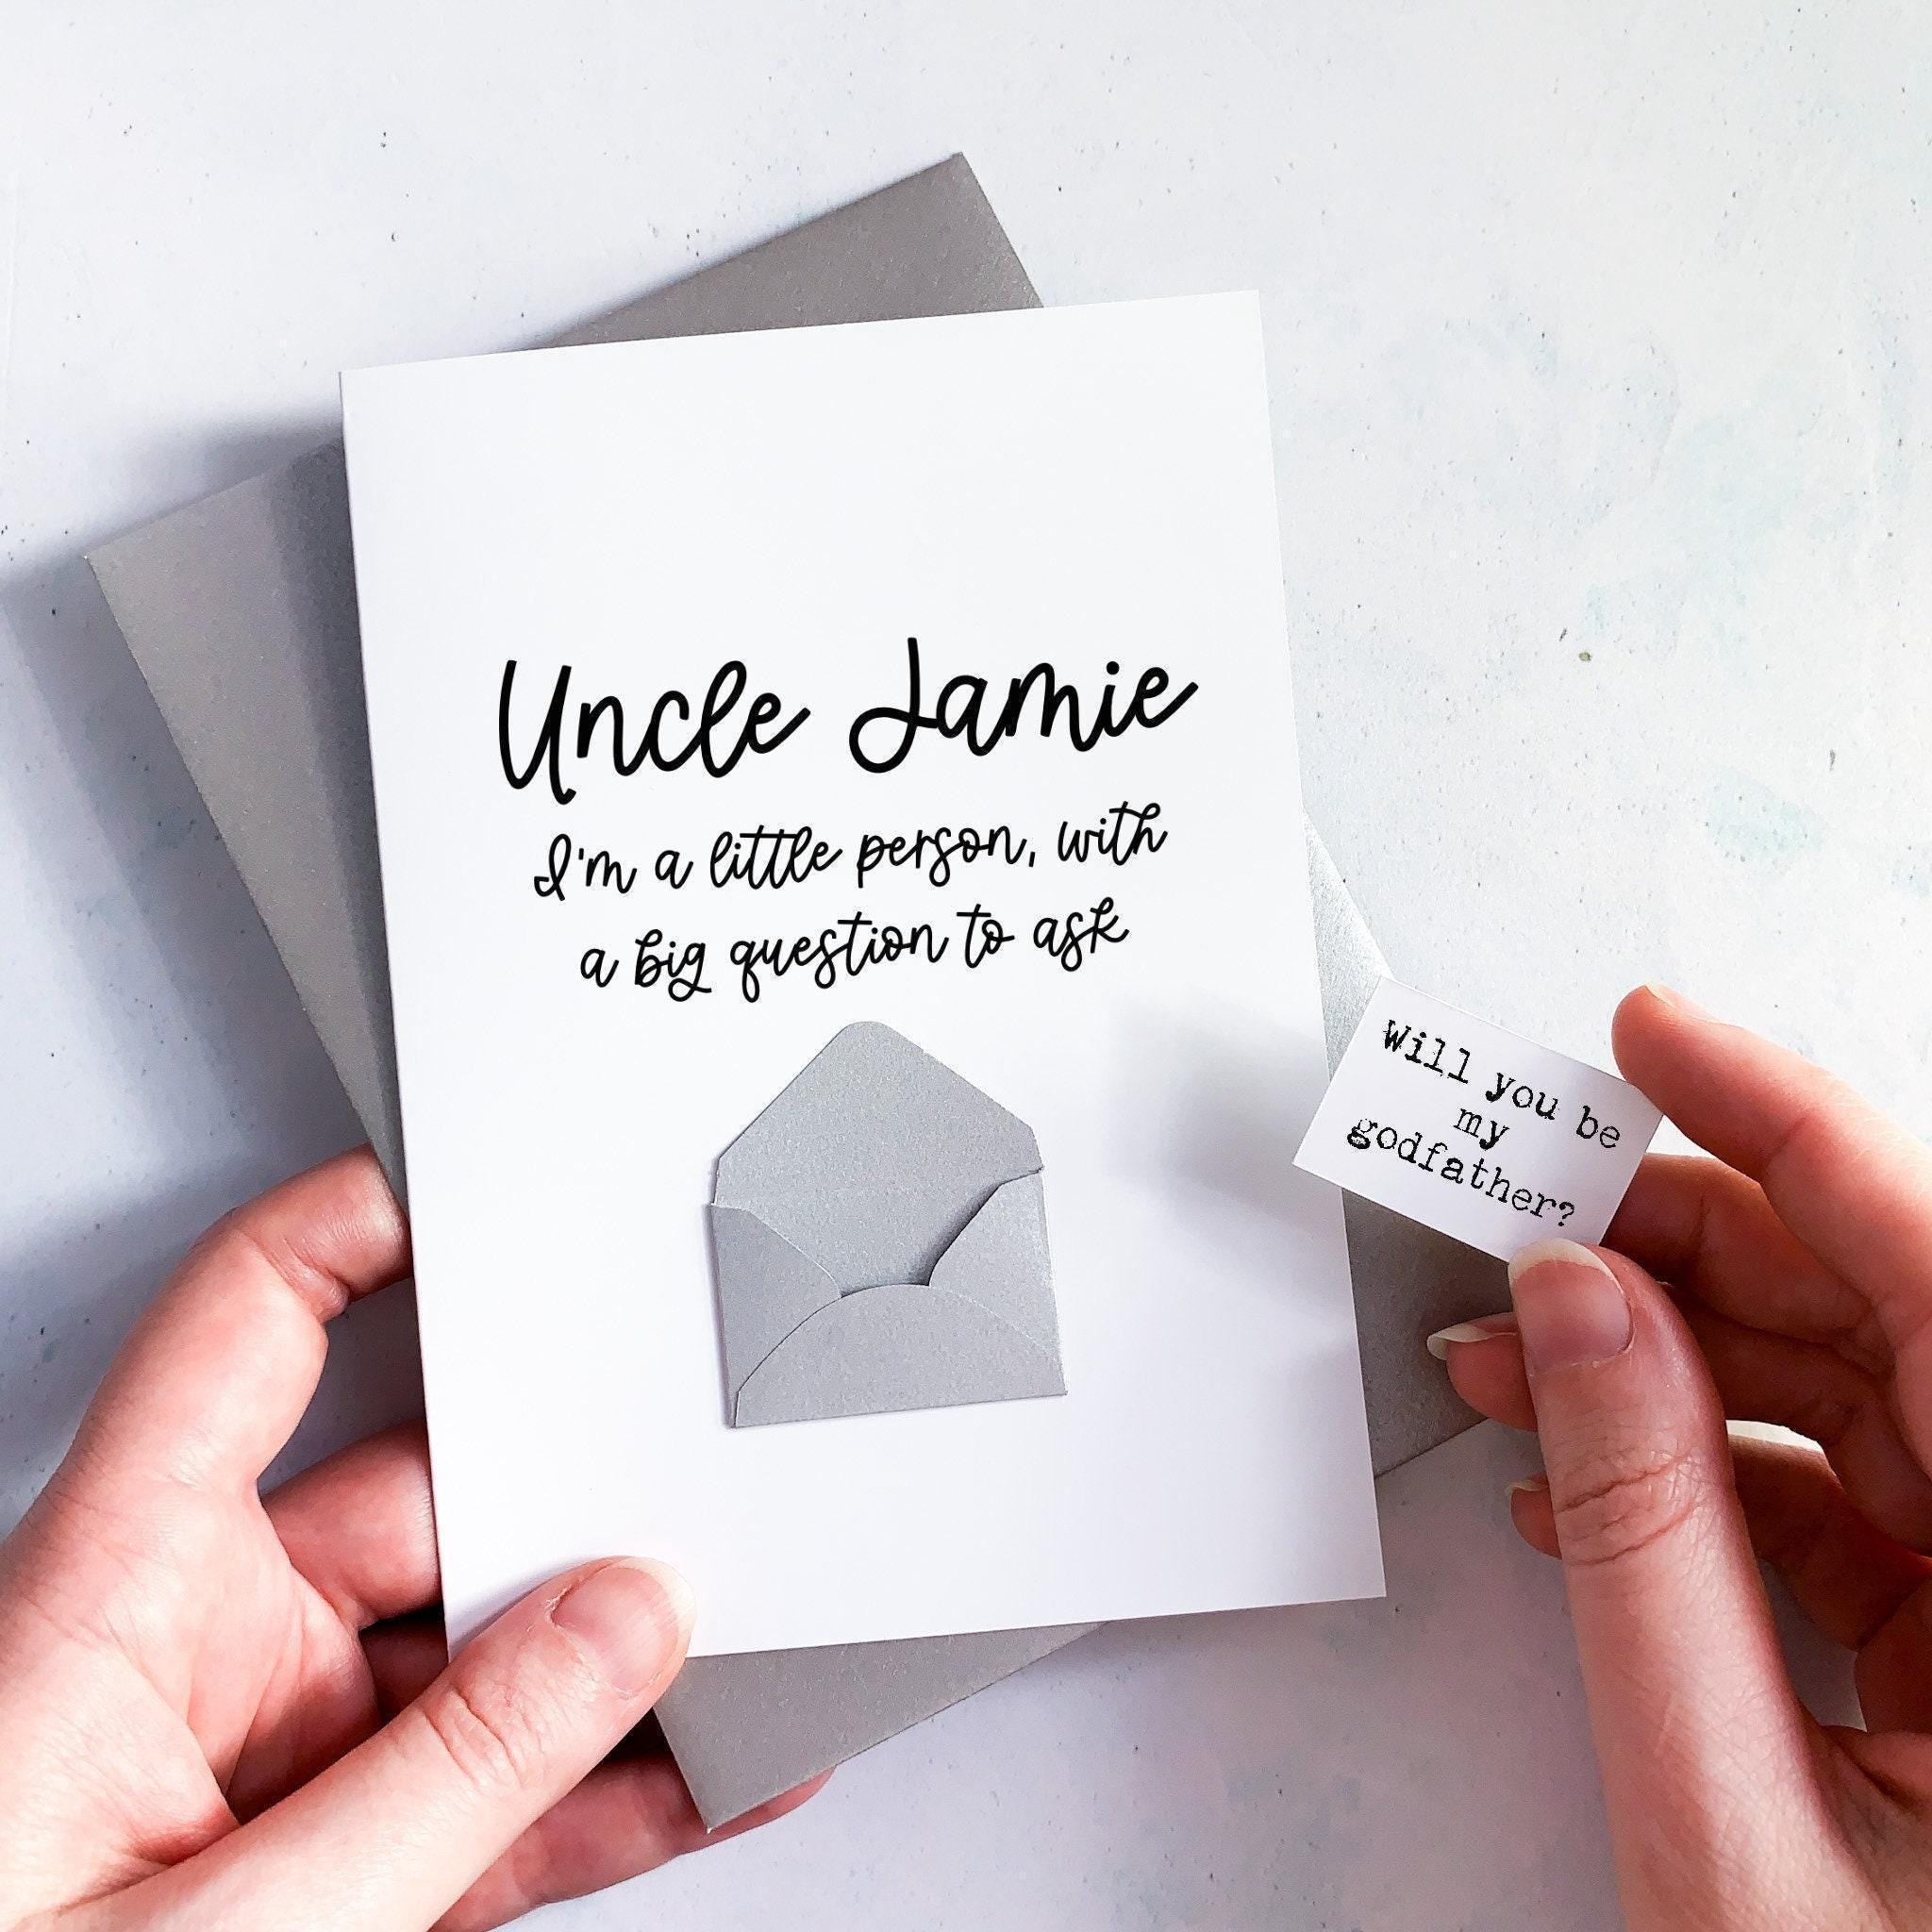 Uncle Jamie
I'm a little person, with
a big question to ask
Will you be
my
godfather?